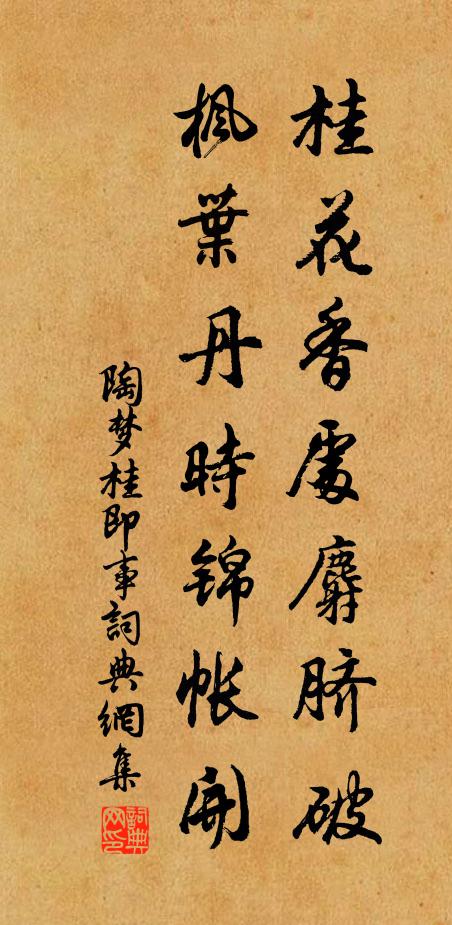 桂花香處麝脐破
枫葉丹時锦帐開
陶梦桂即事詞典網集
詞典网印